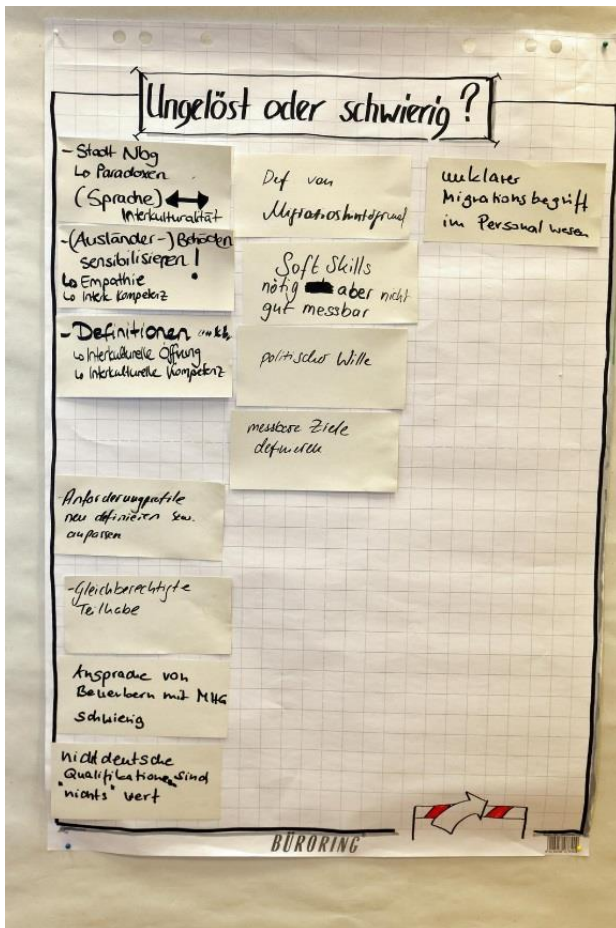 Ungelöst oder schwierig?
- Stadt Nbg
↳ Paradoxen
(Sprache) ↔
Interkulturalität
-(Ausländer-) Behöden
sensibilisieren!
↳ Empathie
↳ Interk. Kompetenz
- Definitionen
↳ Interkulturelle Öffnung
↳ Interkulturelle Kompetenz
Anforderungprofile
neu definieren bzw.
anpassen
-Gleichberechtigte
Teilhabe
Ansprache von
Bewerbern mit MHG
schwierig
nichtdeutsche
Qualifikationen sind
"nichts" wert
Def von
Migrationshintergrund
Soft Skills
nötig aber nicht
gut messbar
politischer Wille
messbare Ziele
definieren
unklarer
Migrationsbegriff
im Personalwesen
BÜRORING